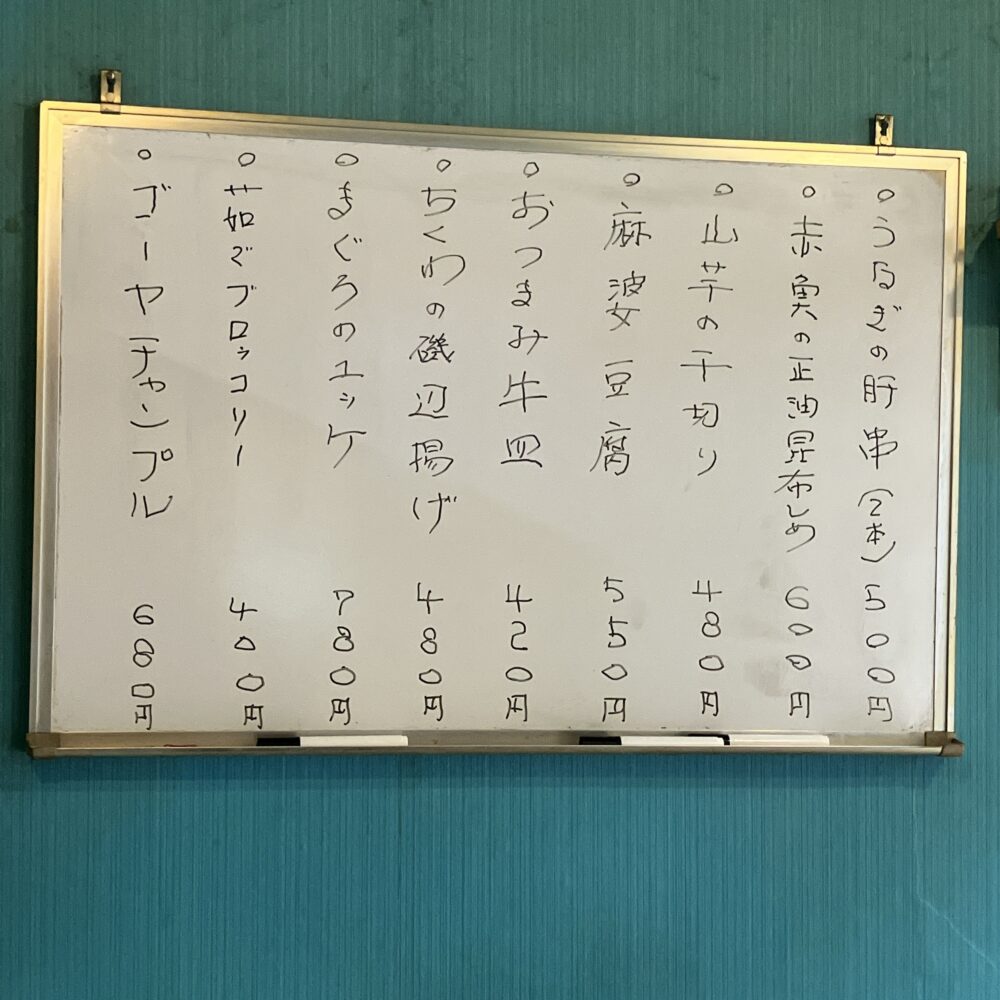 ○うなぎの肝串(2本) 500円
○赤魚の正油昆布しめ 600円
○山芋の千切り 480円
○麻婆豆腐 550円
○おつまみ牛皿 420円
○ちくわの磯辺揚げ 480円
○まぐろのユッケ 780円
○茹でブロッコリー 400円
○ゴーヤチャンプル 680円